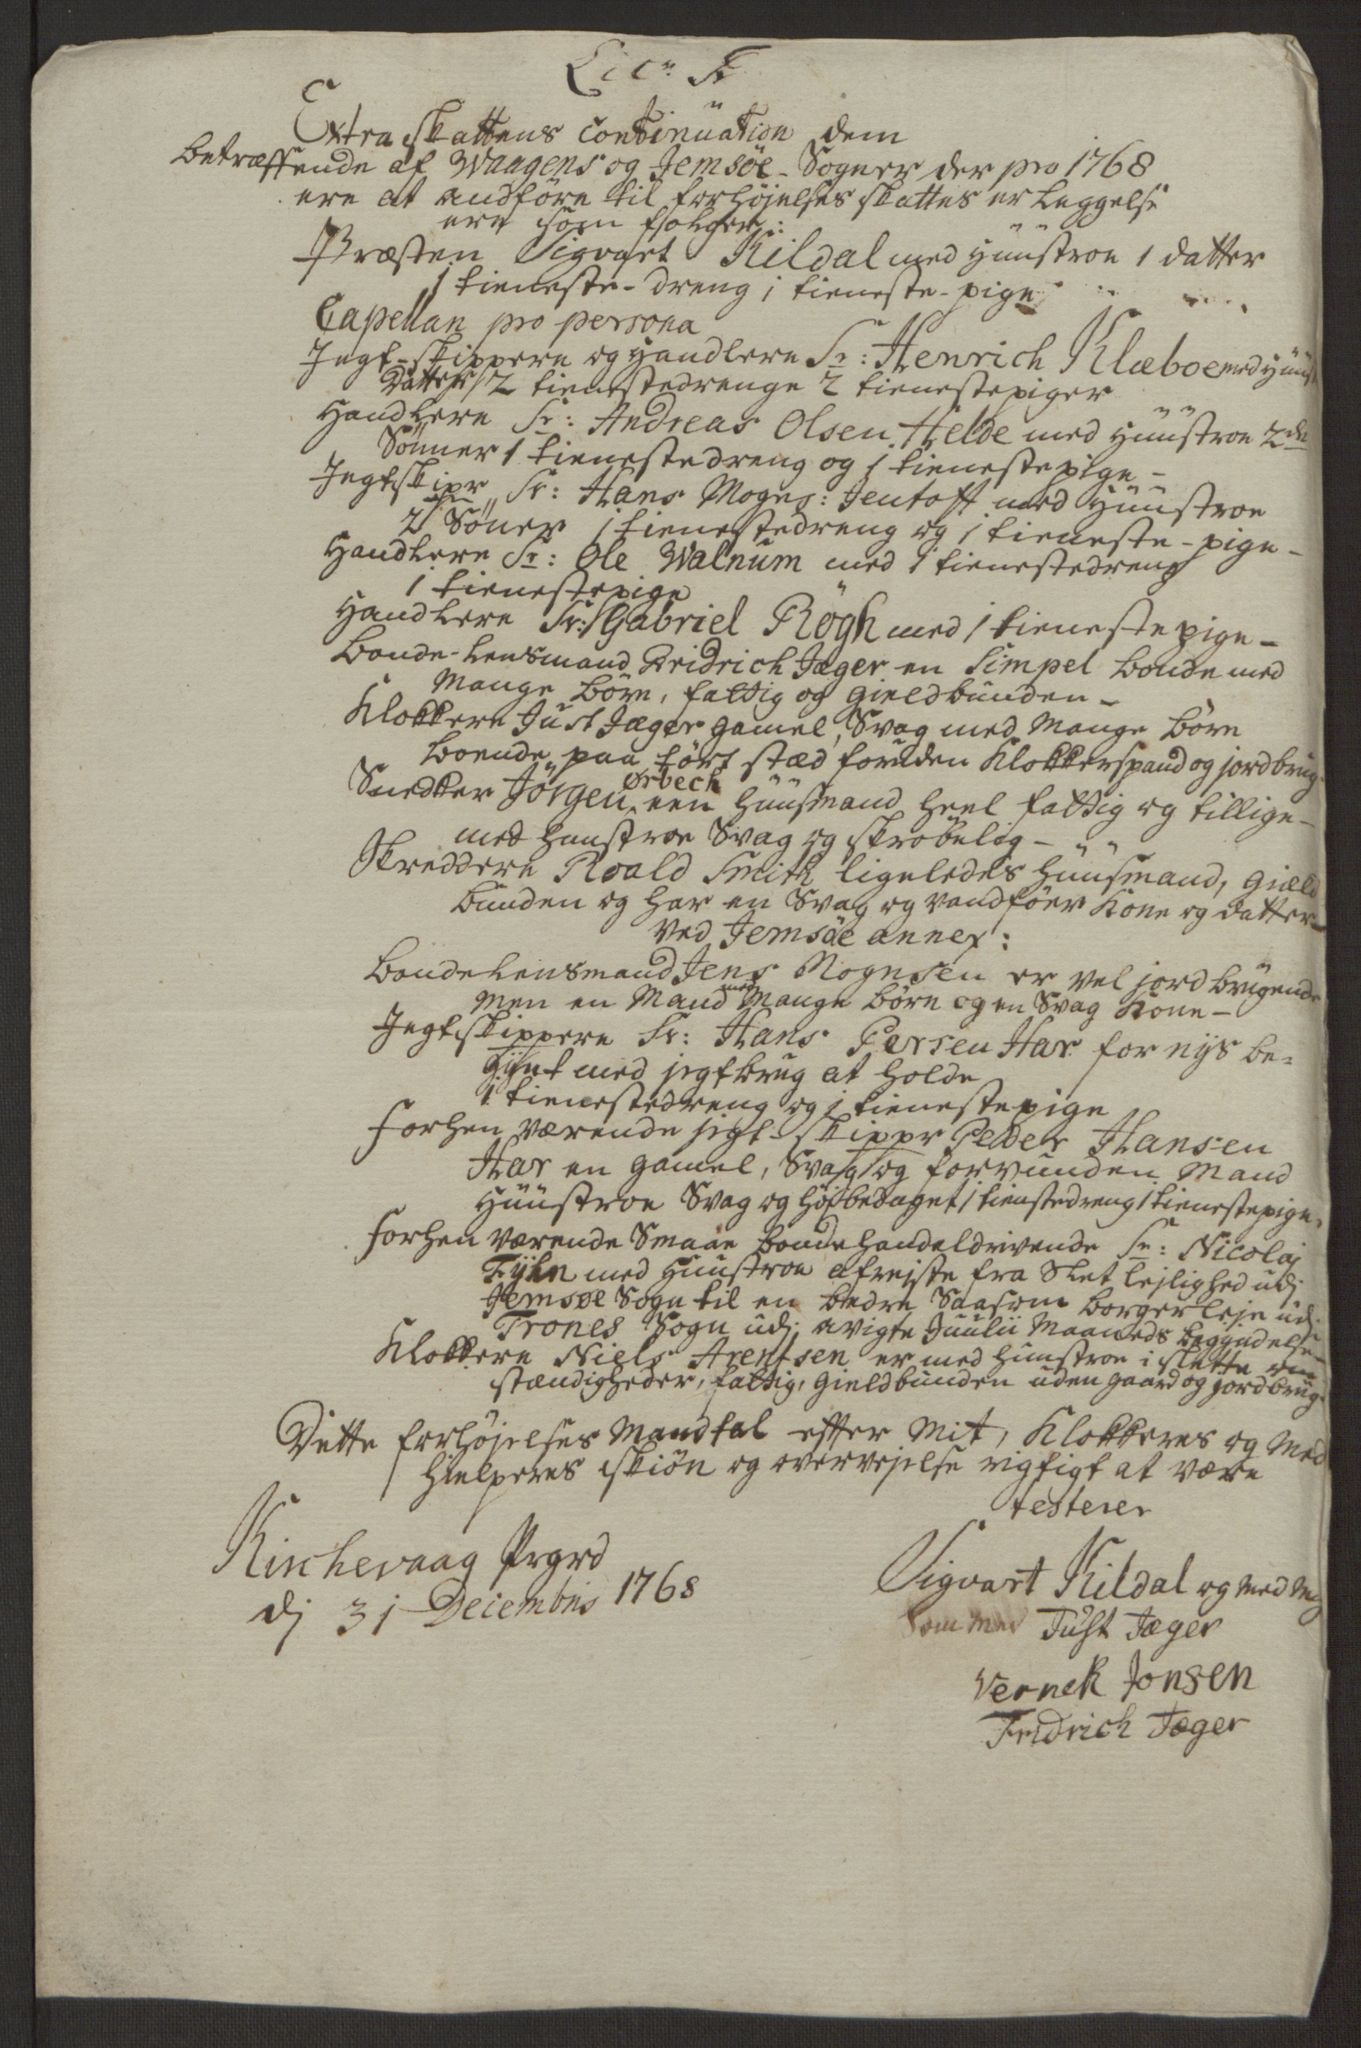 Litr. F
Extra skattens Continuation dem
betræffende af Waagens og Jemsöe Sogner der pro 1768
ere at andföre til forhöjelses skattes erleggelse
ere som følger:
Præsten Sigvart Kildal med Huustroe 1 datter
1 tieneste-dreng 1 tieneste-pige
Capellan pro persona
Jegt-skippere og Handlere Sr: Henrich Klæboe med Huust
datter 2 tienestedrenge 2 tienestepiger
Handlere Sr: Andreas Olsen Helde med Huustroe 2de
Sönner 1 tienestedreng og 1 tienestepige -
Jegtskipr Sr: Hans Mogns: Jentoft med Huustroe
2 Söner 1 tienestedreng og 1 tieneste-pige -
Handlere Sr: Ole Walnum med 1 tienestedreng
1 tienestepige
Handlere Sr: Gabriel Rögh med 1 tienestepige -
Bonde-Lensmand Fridrich Jæger en Simpel bonde med
Mange börn, fattig og gieldbunden -
Klokkere Just Jæger gamel, Svag med Mange börn
boende paa tört stæd foruden Klokkerspand og jordbrug
Snedker Jörgen Ørbech een Huusmand heel fattig og tillige-
med hustroe Svag og skröbelig -
Skreddere Roald Smith ligeledes Huusmand, giæld
bunden og har en Svag og vandföer Kone og datter -
Ved Jemsöe annex:
Bonde Lensmand Jens Mognsen er vel jordbrugende
men en Mand med Mange börn og en Svag Kone -
Jegtskippere Sr: Hans Persen Har for nys be-
gynt med jegtbrug at holde
1 tienestedreng og 1 tienestepige
Forhen værende jegt-skippr Peder Hansen
Har en gamel, Svag og forvunden Mand
Huustroe Svag og höjbedaget 1 tienstedreng 1 tienestepige
Forhen værende Smaae bondehandeldrivende Sr: Nicolaj
Fyhn med Huustroe afrejste fra Slet lejlighed udj
Jemsøe Sogn til en bedre Saasom borgerleje udj
Trones Sogn udj avigte Juulii Maaneds begyndelse -
Klokkere Niels Arentsen er med hustroe i slette om-
stændigheder, fattig, gieldbunden uden gaard og jordbrug
Dette forhöjelses Mandtal efter Mit, Klokkeres og Med
hielperes skiön og overvejelse rigtigt at være
testerer
Kirchevaag Prgrd
dj 31 Decembris 1768
Sigvart Kildal og Med Mig
Som Med Just Jæger
Vernek Jonsen
Fridrich Jæger